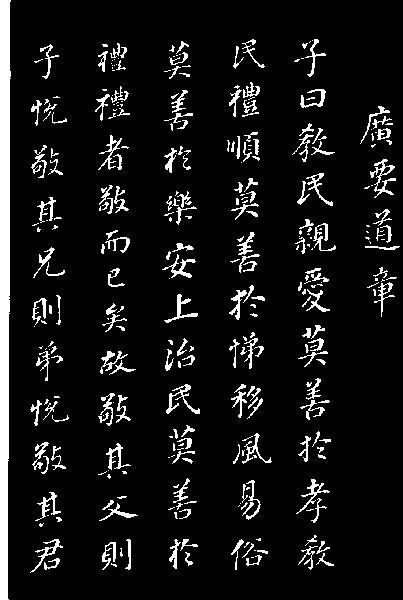 廣要道章
子曰教民親愛莫善於孝教
民禮順莫善於悌移風易俗
莫善於樂安上治民莫善於
禮禮者敬而已矣故敬其父則
子悅敬其兄則弟悅敬其君